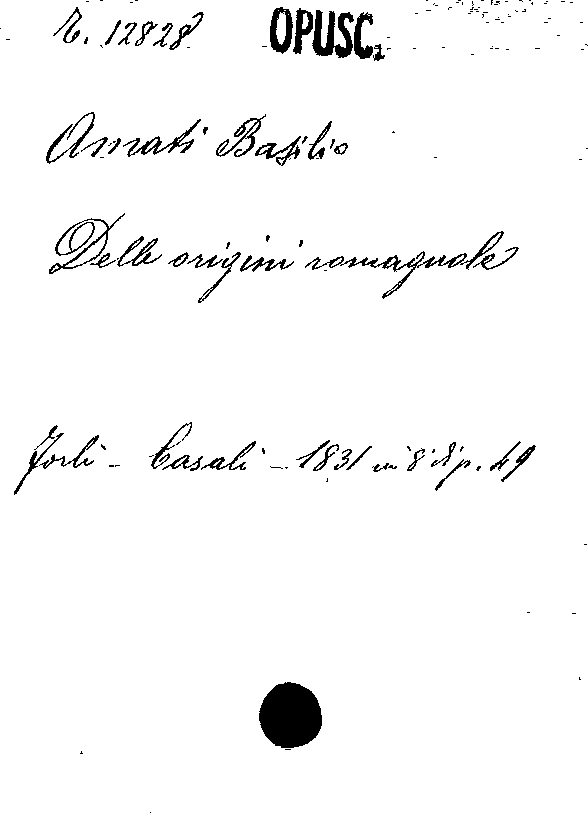 r. 12828 OPUSC.1
Amati Basilio
Delle origini romagnole
Forlì - Casali - 1831 in 8° di p. 49